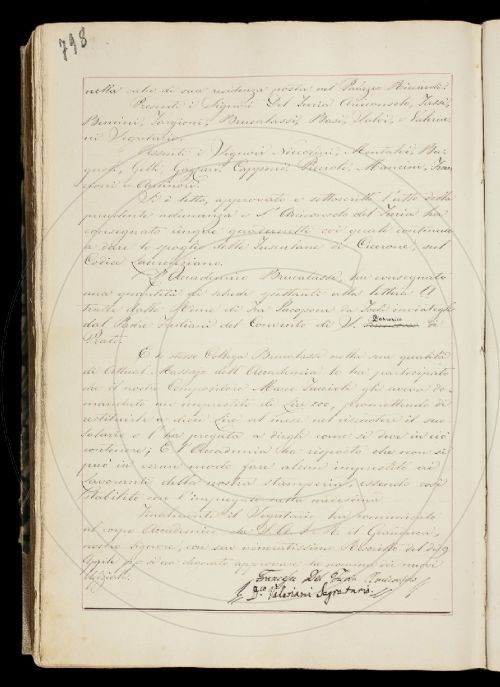 798
nella sala di sua residenza posta nel Palazzo Riccardi.
Presenti i Signori Del Furia Arciconsolo, Tassi,
Bencini, Targioni, Brucalassi, Basi, Salvi, e Valeria-
ni Segretario.
Assenti i Signori Niccolini, Montalvi, Ba-
Gelli, Gazzeri, Capponi, Piccioli, Mancini, Fran-
ceschi e
Si è letto, approvato e sottoscritto l'atto della
precedente adunanza e l'Arciconsolo del Furia ha
consegnato cinque quadernetti coi quali continua
a dare lo spoglio delle Tusculane di Cicerone, sul
Codice Laurenziano.
L'Accademico Brucalassi ha consegnato
una quantità di schede spettanti alla lettera A
tratte dalle Rime di Fra Jacopone da Todi inviategli
dal Padre del Convento di S. Domenico di
Prato.
E lo stesso Collega Brucalassi nella sua qualità
di Attual Massajo dell'Accademia le ha partecipato
che il nostro Compositore Marco gli aveva do-
mandato un imprestito di Lire 100, promettendo di
restituirle a dieci Lire al mese nel riscuotere il suo
salario e l'ha pregata a dirgli come si deve in ciò
contenere; E l'Accademia ha risposto che non si
può in verun modo fare alcun imprestito ai
Lavoranti della nostra stamperia, essendo così
stabilito con l'impiegato nella medesima
Finalmente il Segretario ha comunicato
al corpo Accademico che S. A. I. e R. il Granduca,
nostro Signore, con suo veneratissimo Rescritto del dì 9
Aprile si è degnato approvare la nomina dei nuovi
Uffiziali.
Francesco Del Furia Arciconsolo
Valeriani Segretario.